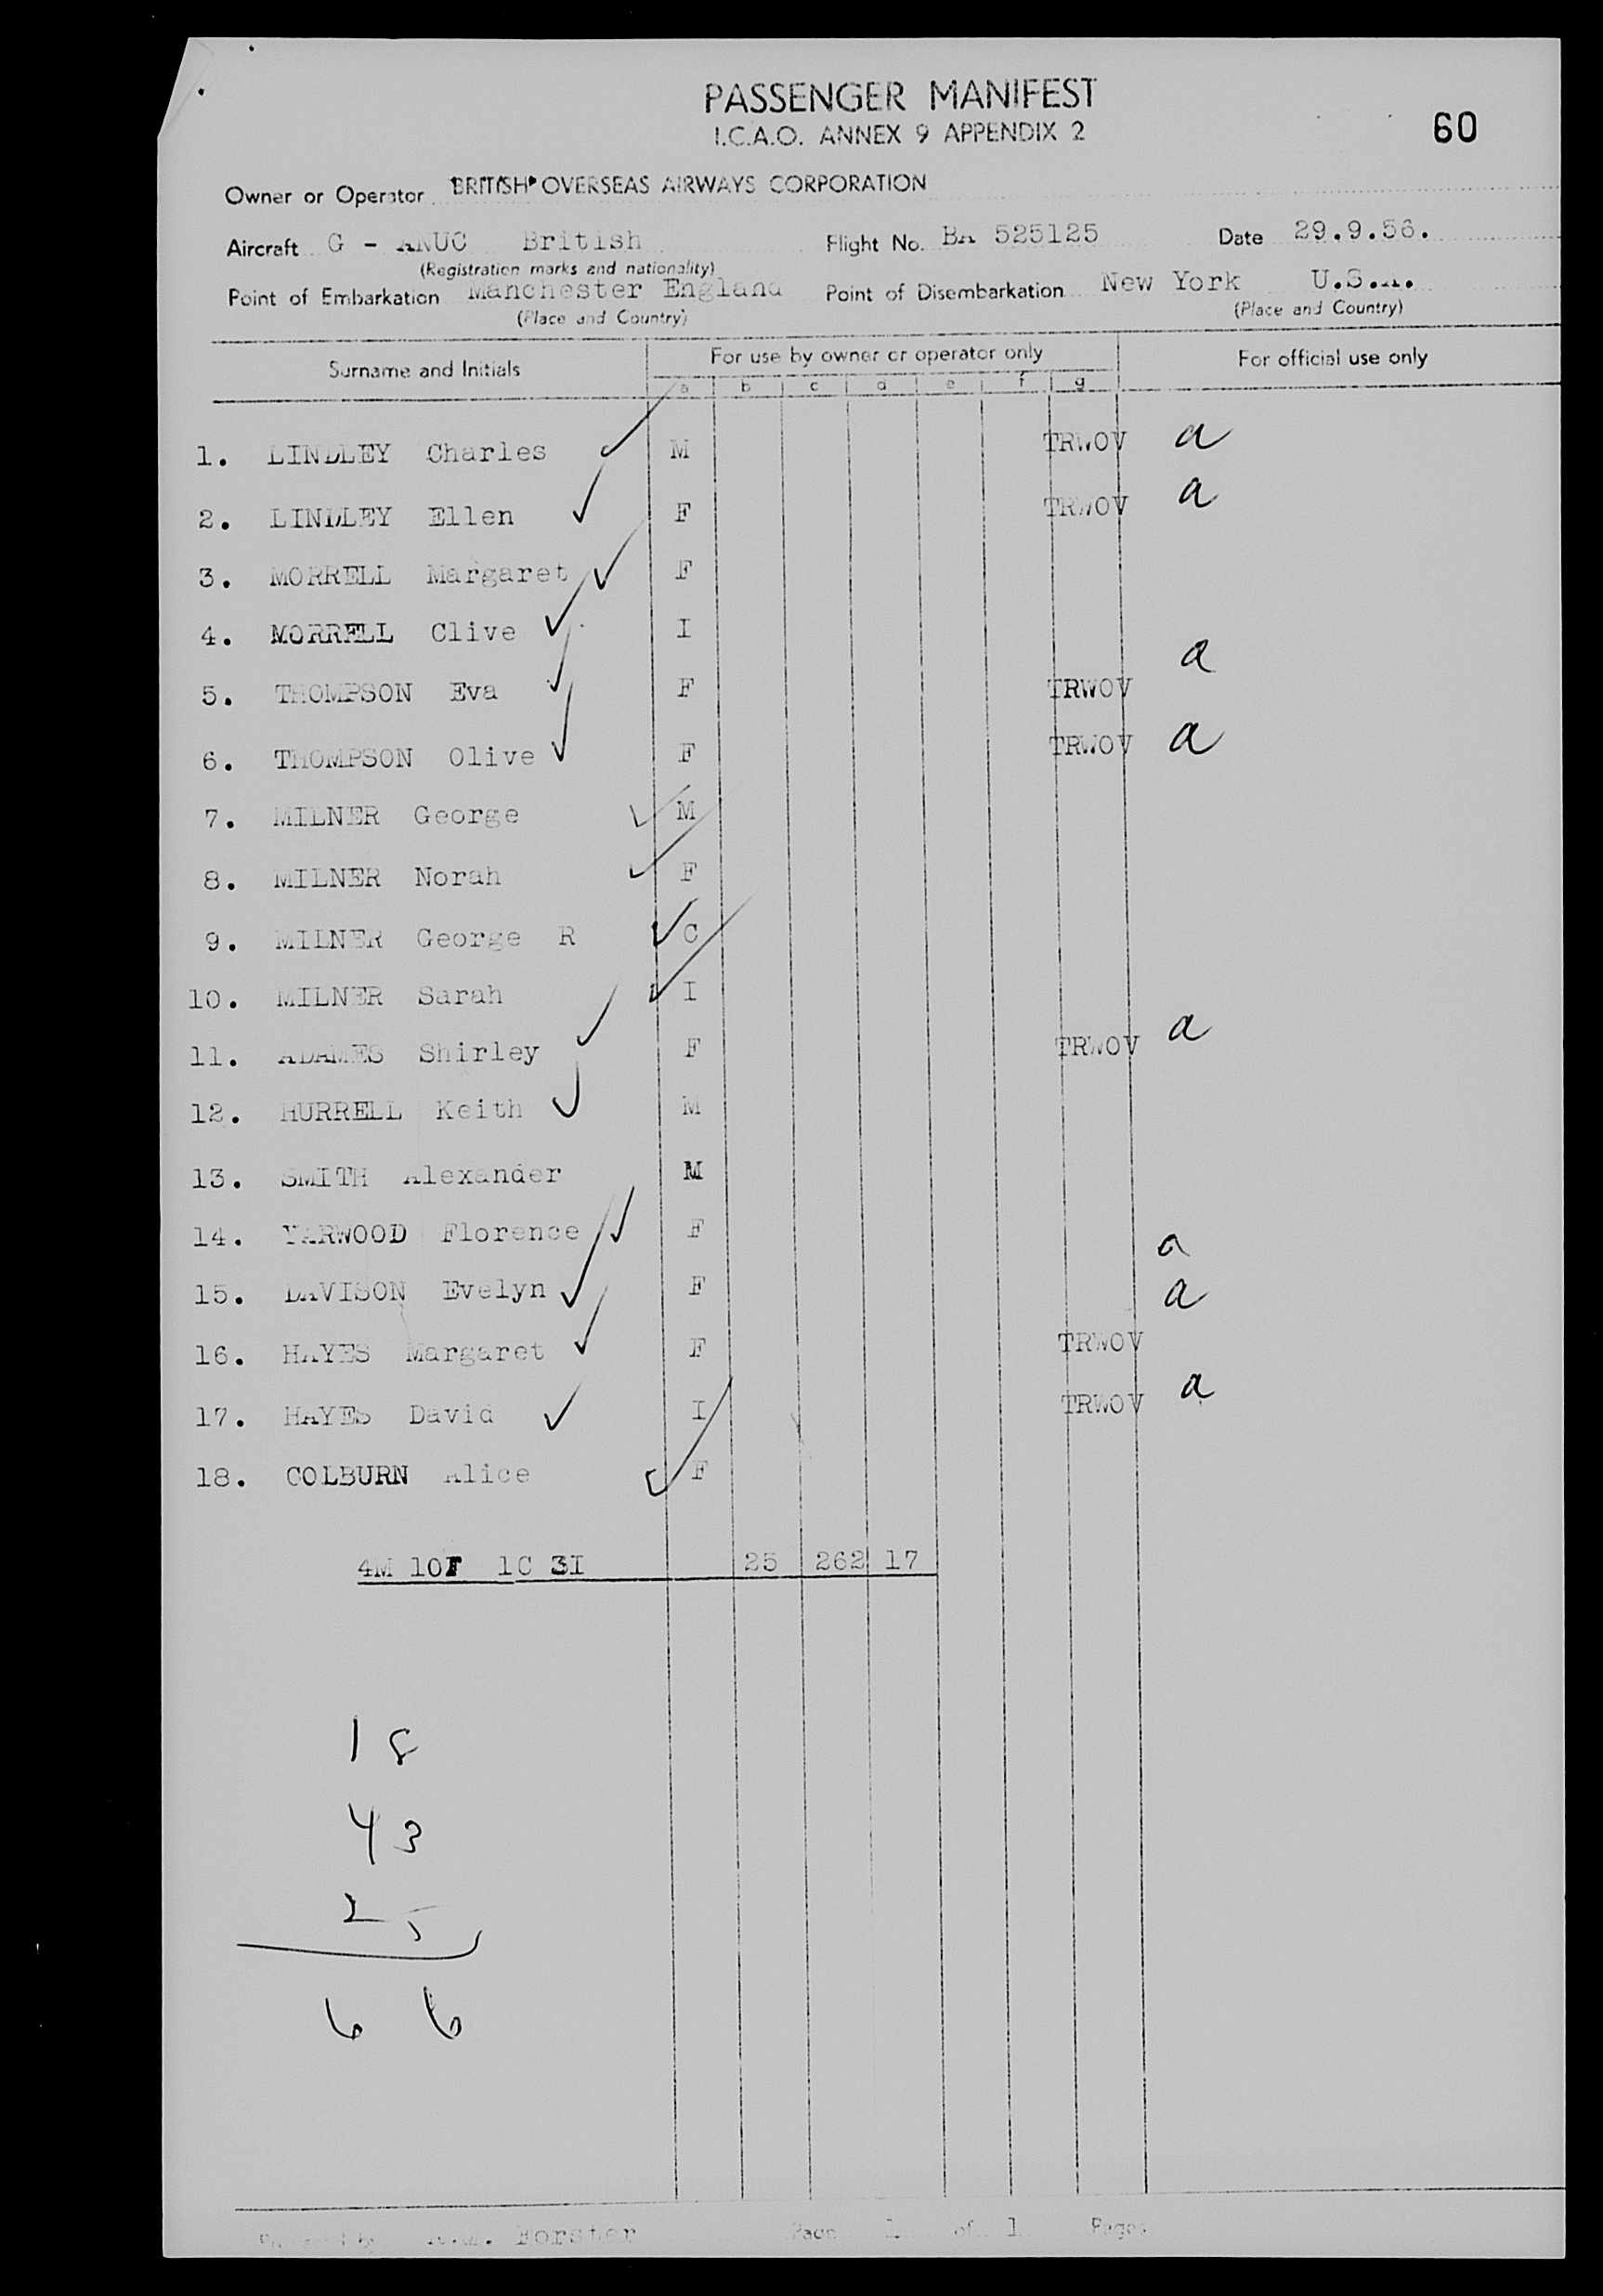 PASSENGER MANIFEST
I.C.A.O. ANNEX 9 APPENDIX 2
60
Owner or Operator BRITISH OVERSEAS AIRWAYS CORPORATION
Aircraft G - ANUC British Flight No. BA 525125 Date 29.9.56.
(Registration marks and nationality)
Point of Embarkation Manchester England Point of Disembarkation New York U.S.A.
(Place and Country) (Place and Country)
Surname and Initials For use by owner or operator only For official use only
a b c d e f g
1. LINDLEY Charles M TRWOV a
2. LINDLEY Ellen F TRWOV a
3. MORRELL Margaret F
4. MORRELL Clive I
5. THOMPSON Eva F TRWOV a
6. THOMPSON Olive F TRWOV a
7. MILNER George M
8. MILNER Norah F
9. MILNER George R C
10. MILNER Sarah I
11. ADAMES Shirley F TRWOV a
12. HURRELL Keith M
13. SMITH Alexander M
14. YARWOOD Florence F a
15. DAVISON Evelyn F a
16. HAYES Margaret F TRWOV
17. HAYES David I TRWOV a
18. COLBURN Alice F
4M 10F 1C 3I 25 262 17
18
43
25
66
Forster Page 1 of 1 Pages